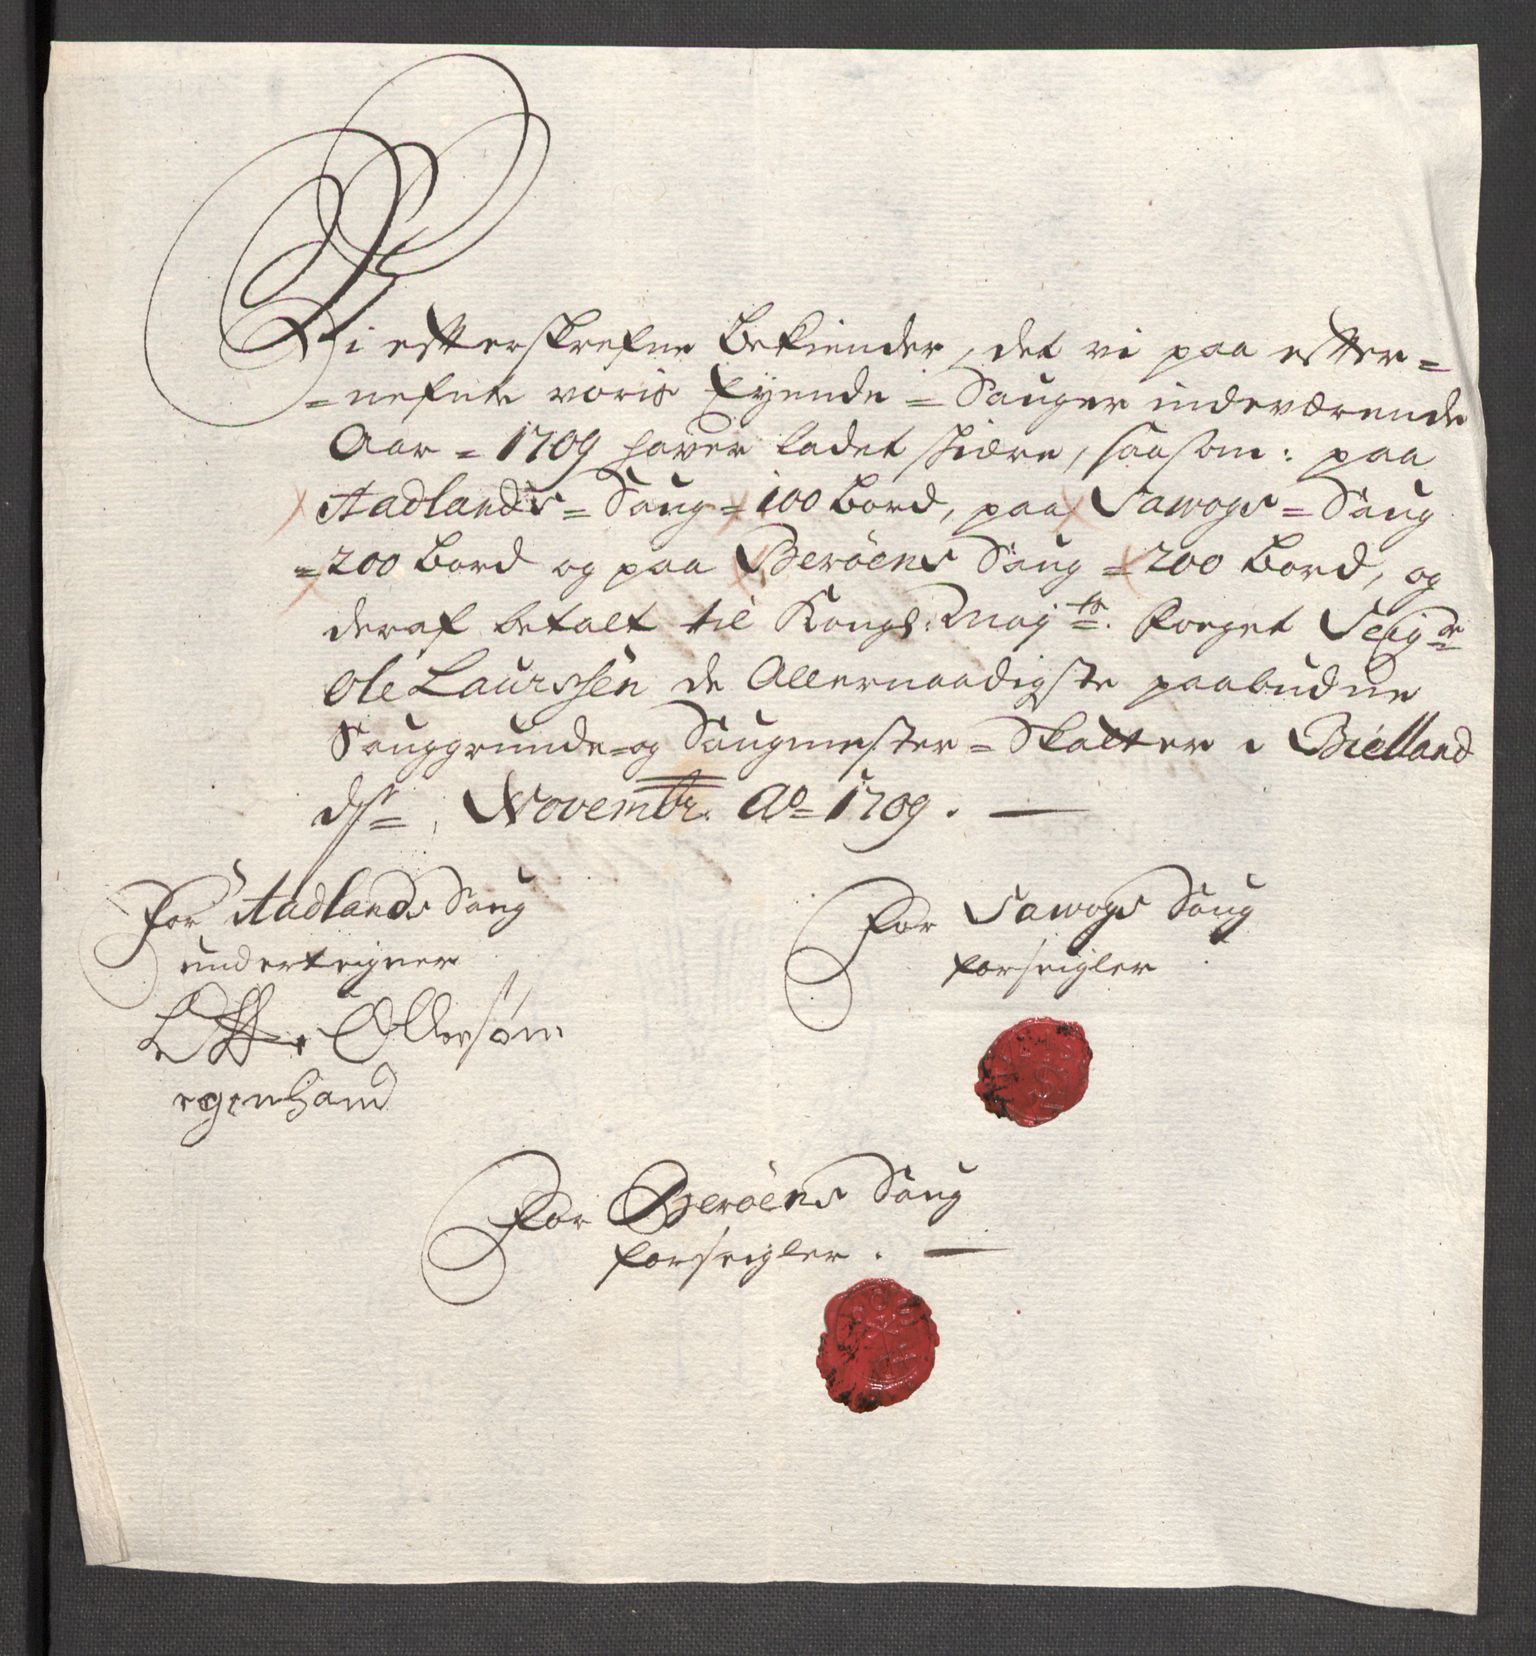 Vi effterskrefne bekiender, det vi paa effter=
=nefnte voris Eyende = Sauger indeværende
Aar = 1709 hafver ladet skiære, saasom: paa
Aadlands = Saug = 100 bord, paa Sawogs = Saug
= 200 bord og paa Berøens Saug = 200 bord, og
deraf betalt til Kongl: Maj:ts Foeget Seigr
Ole Laurssen de Allernaadigste paabudne
Sauggrunde= og Saugmester = Skatter i Bielland
ds = Novembr. Ao 1709.
For Aadlands Saug
underteigner
Ollersøn
egenhand
For Sawogs Saug
forseigler
For Berøens Saug
forseigler.